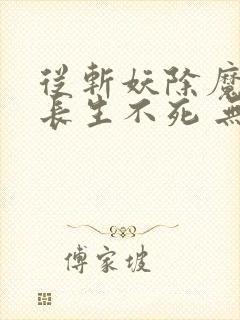 從斬妖除魔
長生不死 無
傅家坡